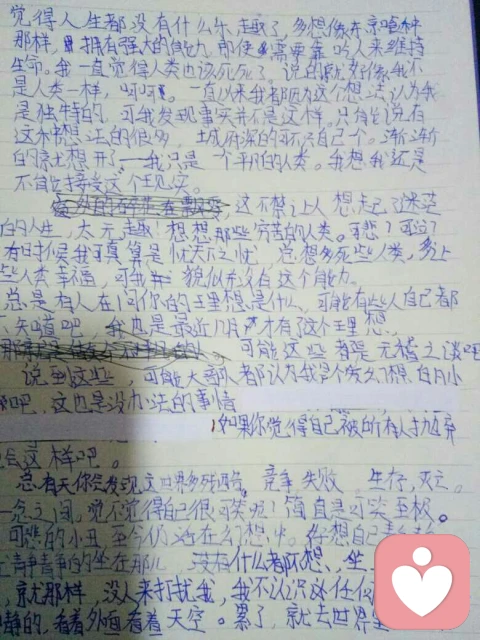 觉得人生都没有什么乐趣了多想像东京喰种
那样，拥有强大的能力，即使需要靠吃人来维持
生命。我一直觉得人类也该死死了，说的就好像我不
是人类一样，呵呵。一直以来我都因为这个想法认为我
是独特的，可我发现事实并不是这样，只能说有
这种想法的很多，城府深的不只自己个。渐渐
的就想开了——我只是一个平凡的人类。我想我还是
不能接受这个现实。
，这不禁让人想起了迷茫
的人生，太无趣！想想那些穷苦的人类。可悲？可泣？
有时候我可真算是忧天下之忧，总想多死些人类，多让
些人类幸福，可我貌似并没有这个能力。
总是有人在问你的理想是什么，可能有些人自己都
不知道吧，我也是最近几月才有了这个理想，
可能这些都是无稽之谈吧
说到这些，可能大部分都认为我是个
吧，这也是没办法的事情
如果你觉得自己被所有人抛弃
会这样吧。
总有天你会发现这世界多残酷，竞争失败，生存，灭亡。
一念之间，觉不觉得自己很可笑呢！简直是可笑至极。
可悲的小丑至今仍还在幻想中。你想自己
静静的坐在那儿，没有什么都不想，坐
，就那样，没人来打扰我，我不认识这任何
静的，看着外面看着天空。累了，就去世界